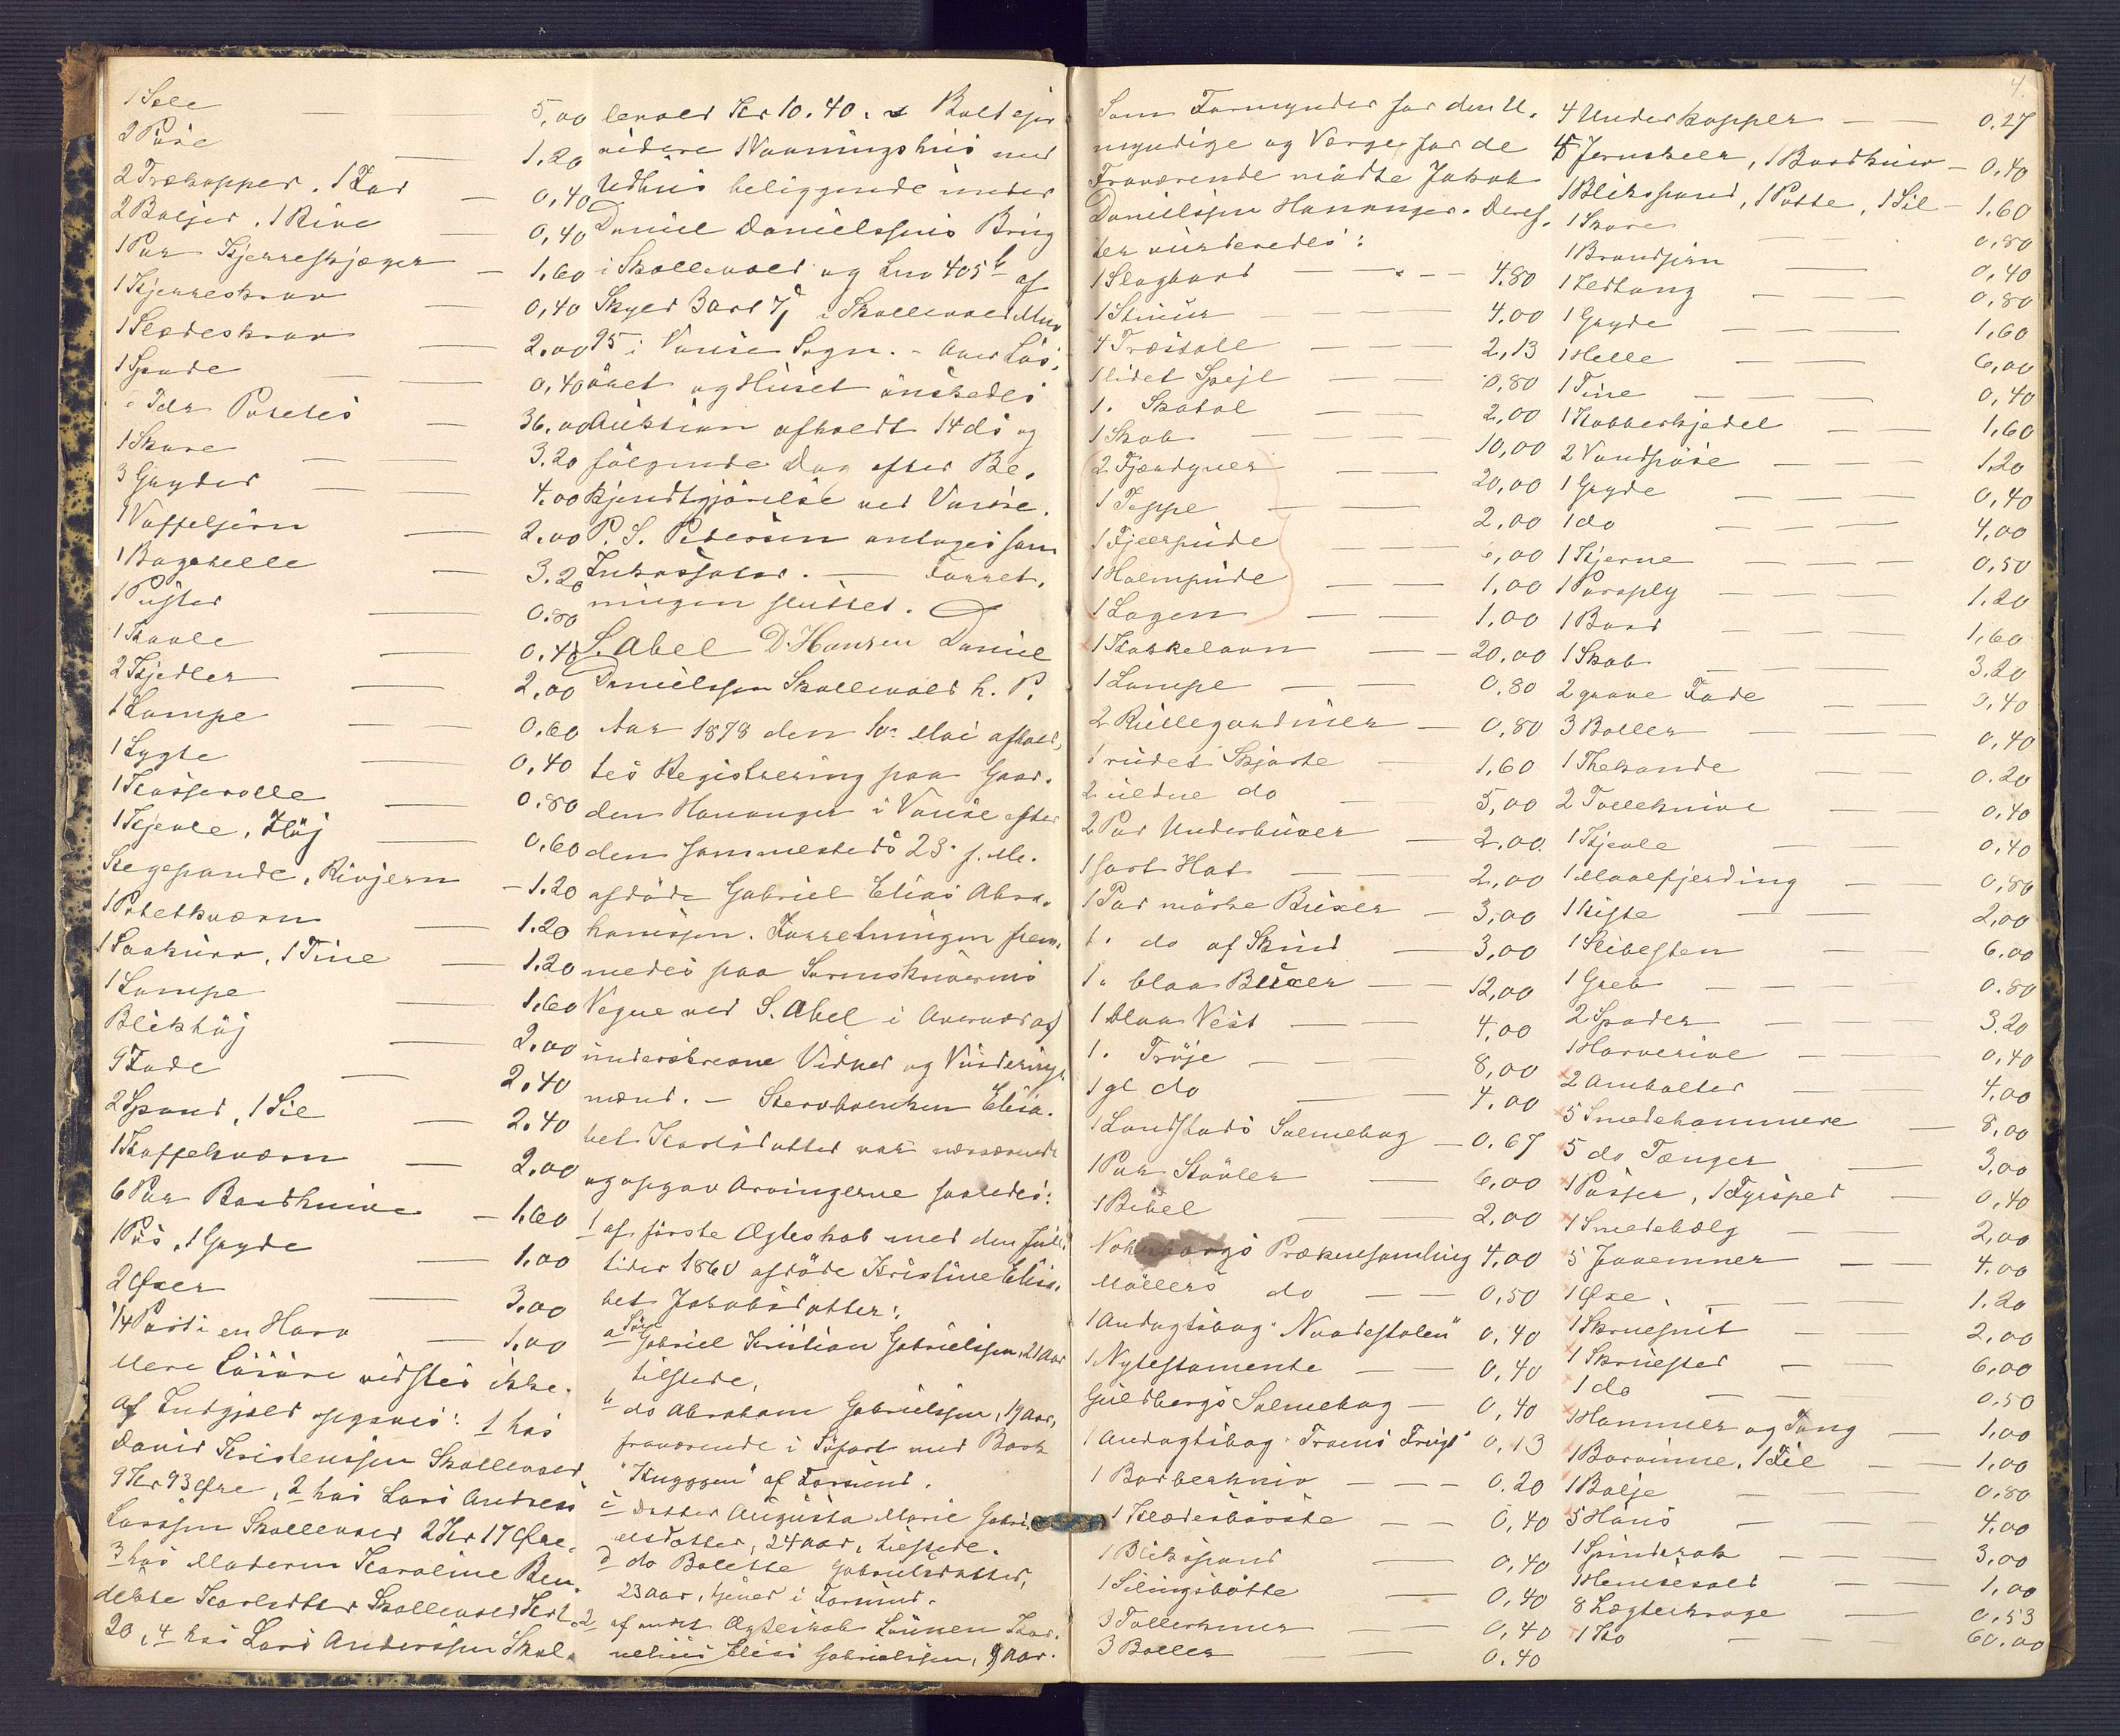 1 Sele — 5,00
2 Pøse — 1.20
2 Trækopper, 1 Kar — 0,40
2 Baljer, 1 Rive — 0,40
1 Par Kjerreskjæger — 1,60
1 Kjerreskrav — 0,40
1 Slædeskrav — 2,00
1 Spade — 0,40
Tdr Poteter — 36,00
1 Skare — 3.20
3 Gryder — 4,00
1 Vaffeljern — 2,00
1 Bagehelle — 3.20
1 Puster — 0.80
1 Kavle — 0,40
2 Kjedler — 2,00
1 Lampe — 0,60
1 Lygte — 0,40
1 Kasserolle — 0.80
1 Kjevle, Tøj — 0,60
Stegepande, Rivjern — 1.20
1 Potetkværn — 1.20
1 Saakurv, 1 Tine — 1.20
1 Lampe — 1,60
Bliktøj — 2,00
9 Fade — 2,40
2 Spand, 1 Sil — 2.40
1 Kaffekværn — 2,00
6 Par Bordknive — 1,60
1 Pøs, 1 Gryde — 1,00
2 Øxer — 3,00
1/4 Part i en Harv — 1,00
Mere Løsøre vidstes ikke.
Af Indgjæld opgaves: 1 hos
David Kristenssen Skollevold
9 Kr 93 Øre, 2 hos Lars Andreas
Larssen Skollevold 2 Kr 17 Øre,
3 hos Moderen Karoline Ben-
dekte Karlsdtter Skollevold Kr 1.
20, 4 hos Lars Anderssen Skol-
levold Kr 10.40. Boet ejer
videre 1 Vaaningshus med
Udhus beliggende under
Daniel Danielssens Brug
i Skollevold og Lno 405 b af
Skyld 3 ort i Skollevold Mno
95 i Vanse Sogn. - Over Løs-
øret og Huset ønskedes
Auktion afholdt 14 ds og
følgende Dag efter Be-
kjendtgjørelse ved Vanse.
P. S. Pedersen antages som
Inkassator. — Forret-
ningen sluttet.
S. Abel D. Hansen Daniel
Danielssen Skollevold h. P.
Aar 1878 den 10. Mai afhold-
tes Registrering paa Gaar-
den Hananger i Vanse efter
den sammesteds 23. f. M.
afdøde Gabriel Elias Abra-
hamssen. Forretningen frem-
medes paa Sorenskriverens
Vegne ved S. Abel i Overvær af
underskrevne Vidner og Vurderings-
mænd. - Stervboenken Elisa-
bet Karlsdatter var nærværende
og opgav Arvingerne saaledes:
1 af første Ægteskab med den Jule-
tider 1860 afdøde Kristine Elisa-
bet Jakobsdatter:
a Søn Gabriel Kristian Gabrielssen, 21 Aar
tilstede,
b do Abraham Gabrielssen, 19 Aar,
fraværende i Søfart med Bark
"Kuggen" af Farsund.
c Datter Augusta Marie Gabri-
elsdatter, 24 Aar, tilstede.
d do Bolette Gabrielsdatter,
23 Aar, tjener i Farsund.
2 af andet Ægteskab Sønnen Kor-
nelius Elias Gabrielssen, 9 Aar.
4.
Som Formynder for den U-
myndige og Værge for de
Fraværende mødte Jakob
Danielssen Hananger. Deref-
ter vurderedes:
1 Slagbord — 4.80
1 Stuur — 4,00
4 Træstole — 2,13
1 lidet Spejl — 0,80
1. Skatol — 2,00
1 Skab — 10,00
2 Fjærdyner — 20,00
1 Teppe — 2,00
1 Fjærpude — ,00
1 Halmpude — 1,00
1 Lagen — 1,00
1 Kakkelovn — 20,00
1 Lampe — 0,80
2 Rullegardiner — 0,80
1 rudet Skjorte — 1,60
2 uldne do — 5,00
2 Par Underbuxer — 2,00
1 sort Hat — 2,00
1 Par mørke Buxer — 3,00
1. do af Skind — 3,00
1. blaa Buxer — 12,00
1 blaa Vest — 4,00
1. Trøje — 8,00
1 gl do — 4,00
1 Landstads Salmebog — 0.67
1 Par Støvler — 6,00
1 Bibel — 2,00
Prækensamling 4,00
Møllers do — 0,50
1 Andagtsbog "Naadestolen" 0,40
1 Nytestamente — 0,40
Guldbergs Salmebog — 0,40
1 Andagtsbog "Troens Frugt" 0,13
1 Barberkniv — 0.20
1 Klædesbørste — 0,40
1 Blikspand — 0,40
1 Silingsbøtte — 0,40
3 Tallerkener — 0,40
3 Boller — 0.40
4 Underkopper — 0.27
Jernskeer, 1 Bordkniv — 0,40
1 Blikspand, 1 Potte, 1 Sil — 1.60
1 Skare — 0,80
1 Brandjern — 0,40
1 Ildtang — 0,80
1 Gryde — 1,60
1 Helle — 6,00
1 Tine — 0,40
1 Kobberkjedel — 1,60
2 Vandpøse — 1.20
1 Gryde — 0,40
1 do — 4,00
1 Kjerne — 0,50
1 Paraply — 1.20
1 Bord — 1,60
1 Skab — 3.20
2 grove Fade — 0,40
3 Boller — 0,40
1 Thekande — 0.20
2 Tolleknive — 0,40
1 Kjevle — 0,40
1 Maalfjerding — 0,80
1 Kiste — 2,00
1 Slibesten — 6,00
1 Greb — 0.80
2 Spader — 3.20
1 Harverive — 0,40
2 Ambolter — 4,00
5 Smedehammere — 8,00
5 do Tænger — 3,00
1 Passer, 1 Fyrsped — 0,40
1 Smedebælg — 2,00
5 Jernemner — 4,00
1 Øxe — 1.20
1 Skruesnit — 2,00
1 Skruested — 6,00
1 do — 0,50
1 Hammer og Tang — 1,00
1 Borvinne, 1 Fil — 1,00
1 Balje — 0,80
5 Høns — 4,00
1 Spinderok — 3,00
1 Hensesold — 1,00
8 Lægtekroge — 0.53
1 Ko — 60,00